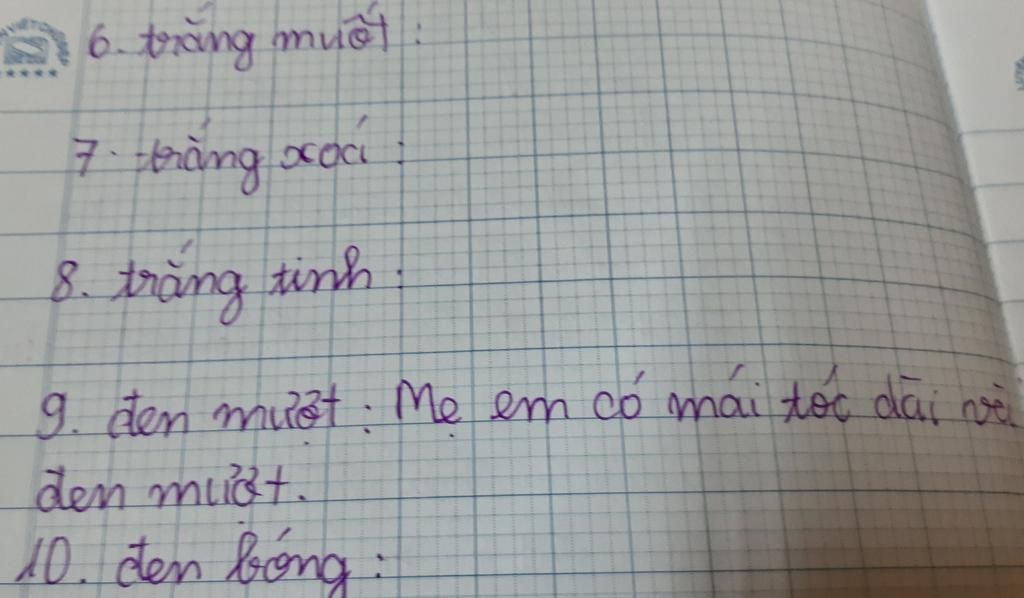 6. trắng muốt :
7. trắng xoá :
8. trắng tinh :
9. đen mượt : Mẹ em có mái tóc dài và
đen mượt.
10. đen bóng :